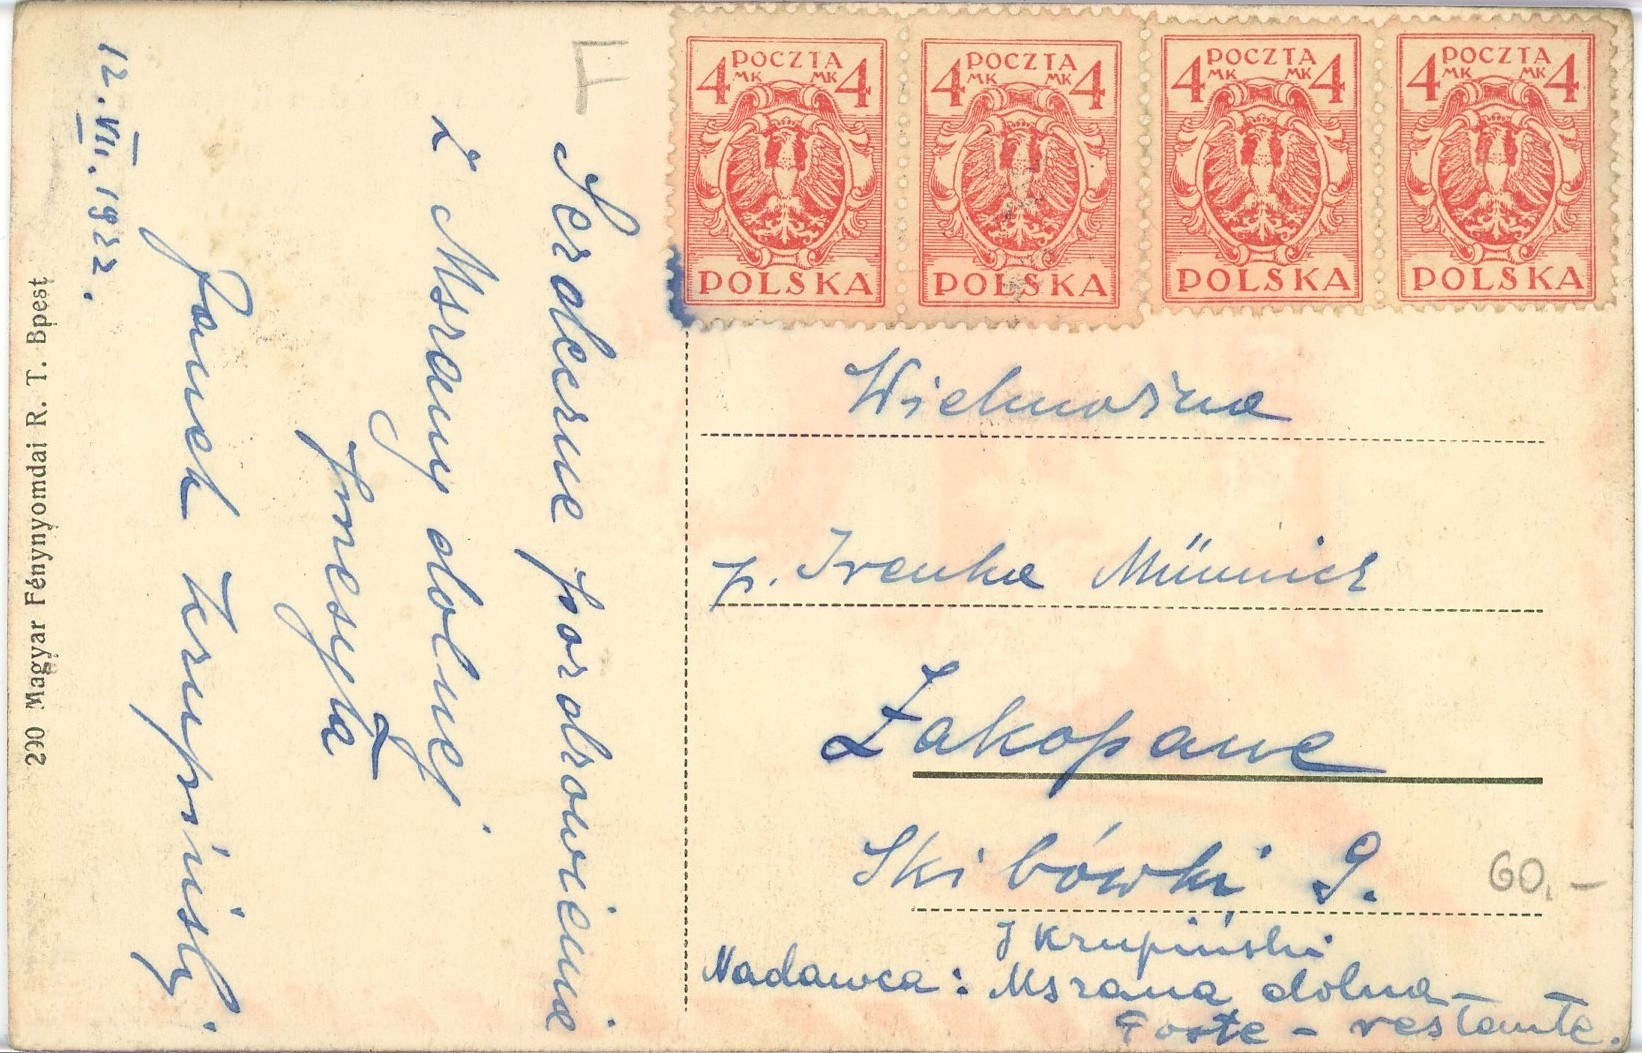 12.VII.1922.
Serdeczne pozdrowienia
z Mszany dolnej
przesyła
Janek Krupiński
290 Magyar Fénynyomdai R. T. Bpest
4 POCZTA 4
MK MK
POLSKA
4 POCZTA 4
MK MK
POLSKA
4 POCZTA 4
MK MK
POLSKA
4 POCZTA 4
MK MK
POLSKA
Wielmożna
p. Irenka Münnich
Zakopane
Skibówki 9.
60.-
J Krupiński
Nadawca: Mszana dolna -
Poste - restante.